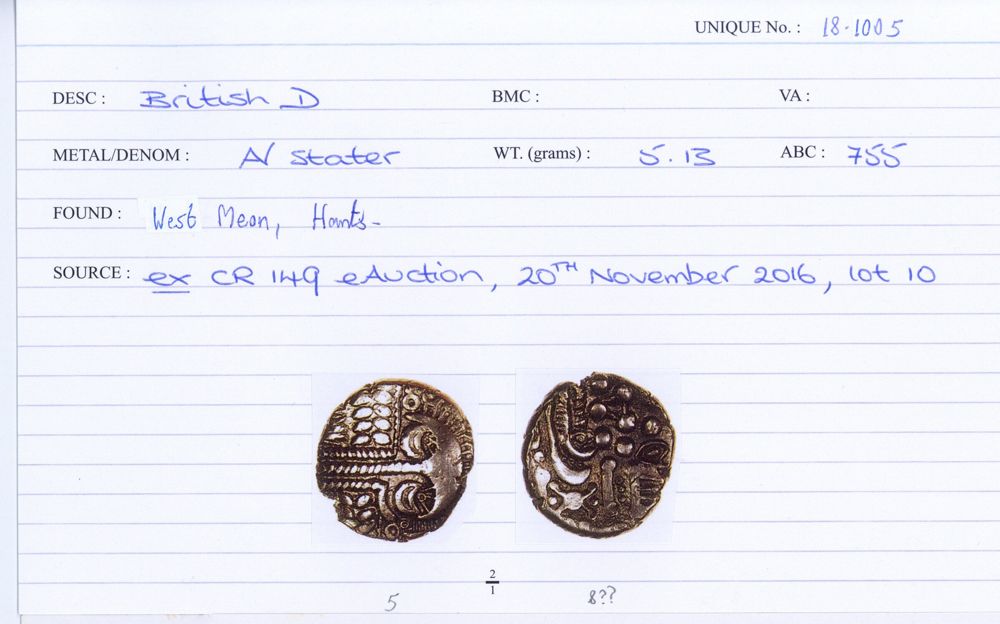 UNIQUE No. : 18·1005
DESC : British D BMC : VA :
METAL/DENOM : AV stater WT. (grams) : 5.13 ABC : 755
FOUND : West Meon, Hants-
SOURCE : ex CR 149 eAuction, 20TH November 2016, lot 10
2
1
5 8??